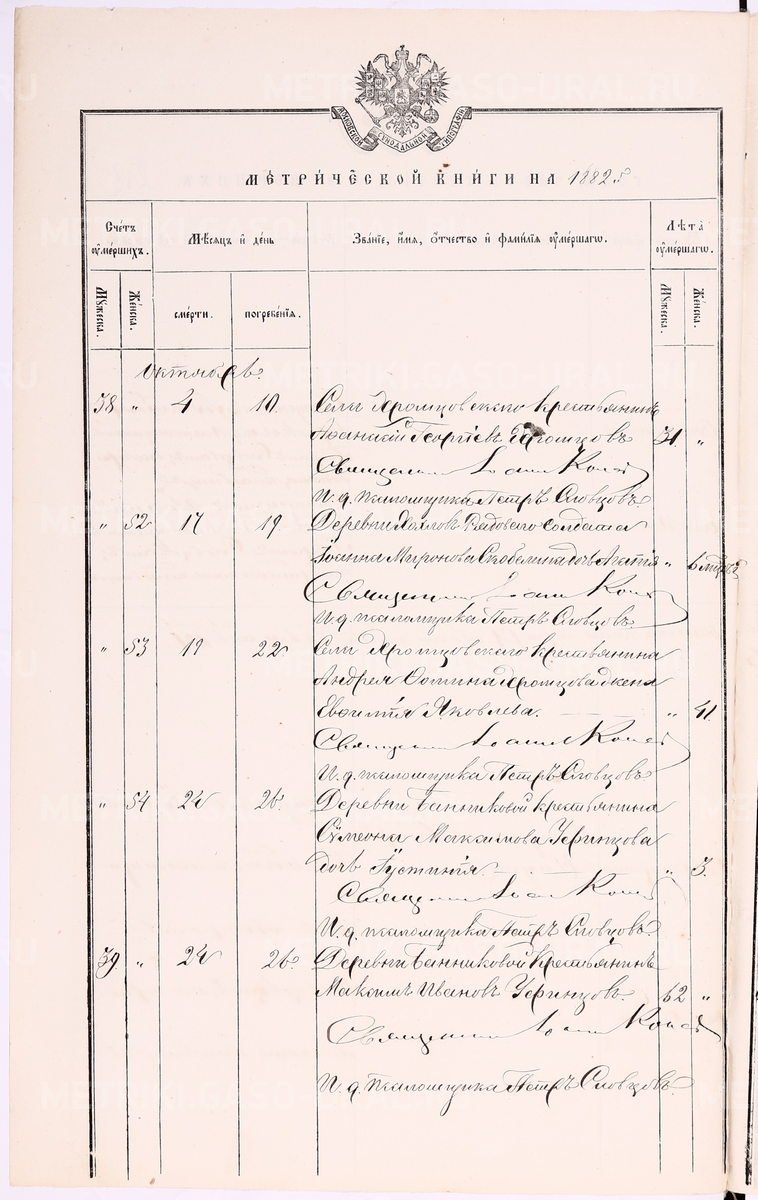 МОСКОВСКОЙ СѴНОДАЛЬНОЙ ТИПОГРАФІИ
МЕТРИЧЕСКОЙ КНИГИ НА 1882 г
Счетъ умершихъ.
Мѣсяцъ и день
Званіе, имя, отчество и фамилія умершаго.
Лѣта умершаго.
Мужеска.
Женска.
смерти.
погребенія.
Мужеска.
Женска.
Октябрь.
38 " 4 10 Села Хромцовскаго крестьянинъ
Афанасій Георгіевъ Хромцовъ 31. "
Священникъ Іоаннъ
И. д. псаломщика Петръ Словцовъ.
" 52 17 19 Деревни Рядоваго солдата
Іоанна Миронова дочь " 6
Священникъ Іоаннъ
И. д. псаломщика Петръ Словцовъ.
" 53 19 22 Села Хромцовскаго крестьянина
Андрея Фотина Хромцова жена
Евфимія Яковлева. " 41.
Священникъ Іоаннъ
И. д. псаломщика Петръ Словцовъ
" 54 24 26. Деревни Банниковой крестьянина
Сѵмеона Максимова Уфинцова
дочь Іустинія. " 3.
Священникъ Іоаннъ
И. д. псаломщика Петръ Словцовъ.
39 " 24 26. Деревни Банниковой крестьянинъ
Максимъ Ивановъ Уфинцовъ. 62 "
Священникъ Іоаннъ
И. д. псаломщика Петръ Словцовъ.